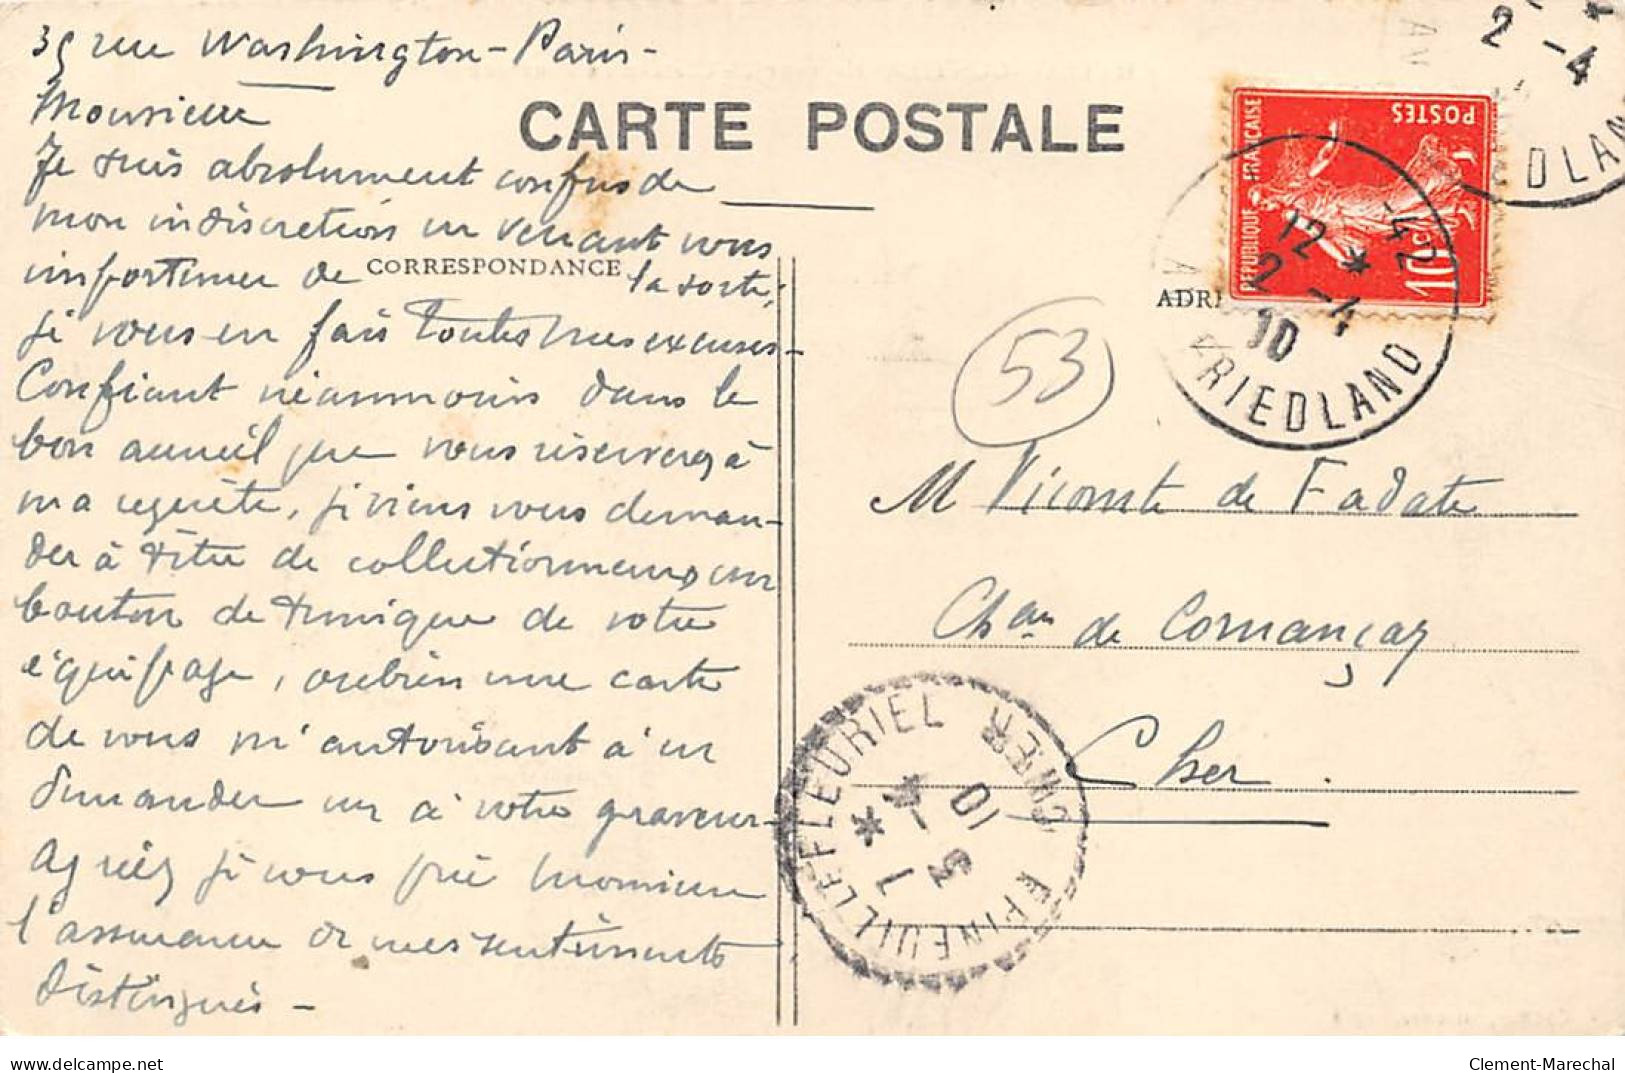 35 rue Washington - Paris -
Monsieur
CARTE POSTALE
Je suis absolument confus de
mon indiscretion en venant vous
importuner de la sorte,
CORRESPONDANCE
je vous en fais toutes mes excuses -
Confiant néanmoins dans le
bon accueil que vous réserverez à
ma requête, je viens vous deman-
der à titre de collectionneur, un
bouton de tunique de votre
équipage, ou bien une carte
de vous m'autorisant à en
demander un à votre graveur -
Agréez je vous prie Monsieur
l'assurance de mes sentiments
distingués -
ADR
53
M Vicomte de Fadate
Chau de Cornançay
Cher.
REPUBLIQUE FRANÇAISE
POSTES
10c
12 * -42
2 -4
10
AV FRIEDLAND
2 -4
DLAN
EPINEUIL LE FLEURIEL
CHER
1 -4
10
delcampe.net
Clement-Marechal